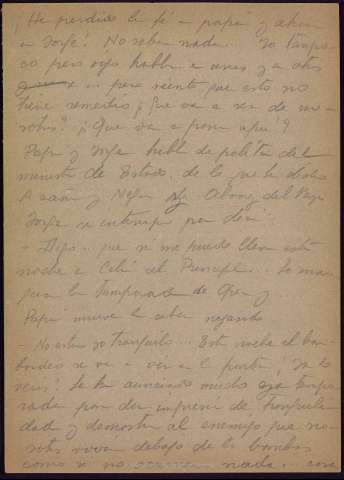 ¡He perdido la fe - papá y ahora
a Jorge! No saben nada. Yo tampo-
co pero oigo hablar a unos y a otros
y siento que esto no
tiene remedio ¿Que va a ser de no-
sotros? ¿Que va a pasar aquí?
Papa y Jorge hablan de política del
ministro de Estado, de lo que ha dicho
Azaña y Negrín
Jorge se interrumpe para decir:
- Digo... que si me puedo llevar esta
noche a Celi al Principal... Lo mar
para la temporada de Opera y...
Papá mueve la cabeza negando
- No estoy yo tranquilo... Esta noche el bom-
bardeo se va a ver en el puerto! Ya lo
veis! Se ha anunciado mucho esa tempo-
rada por dar impresión de tranquili-
dad y demostrar al enemigo que no-
sotros vivimos debajo de las bombas
como si no nada